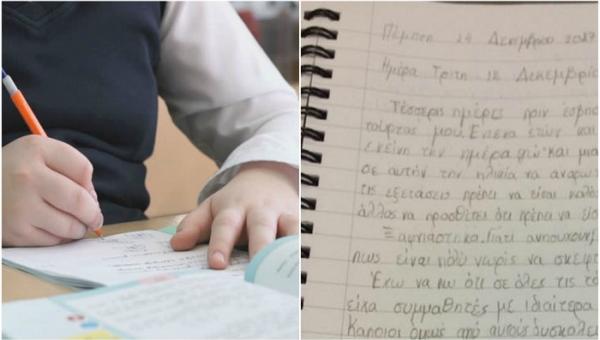 Πέμπτη 24 Δεκεμβρίου 2017
Ημέρα Τρίτη 12 Δεκεμβρίο
Τέσσερις ημέρες πριν έσβησ
τούρτας μου. Ένεκα ετών και
εκείνη την ημέρα και μια
σε αυτήν την ηλικία να αναρω
τις εξετάσεις πρέπει να είσαι καλό
άλλος να προσθέτει ότι πρέπει να
Ξαφνιάστηκα. Γιατί ανησυχούν
πως είναι πολύ νωρίς να σκεφτ
Έχω να πω ότι σε όλες τις τά
είχα συμμαθητές με ιδιαίτερα
Κάποιοι όμως από αυτούς δυσκολε